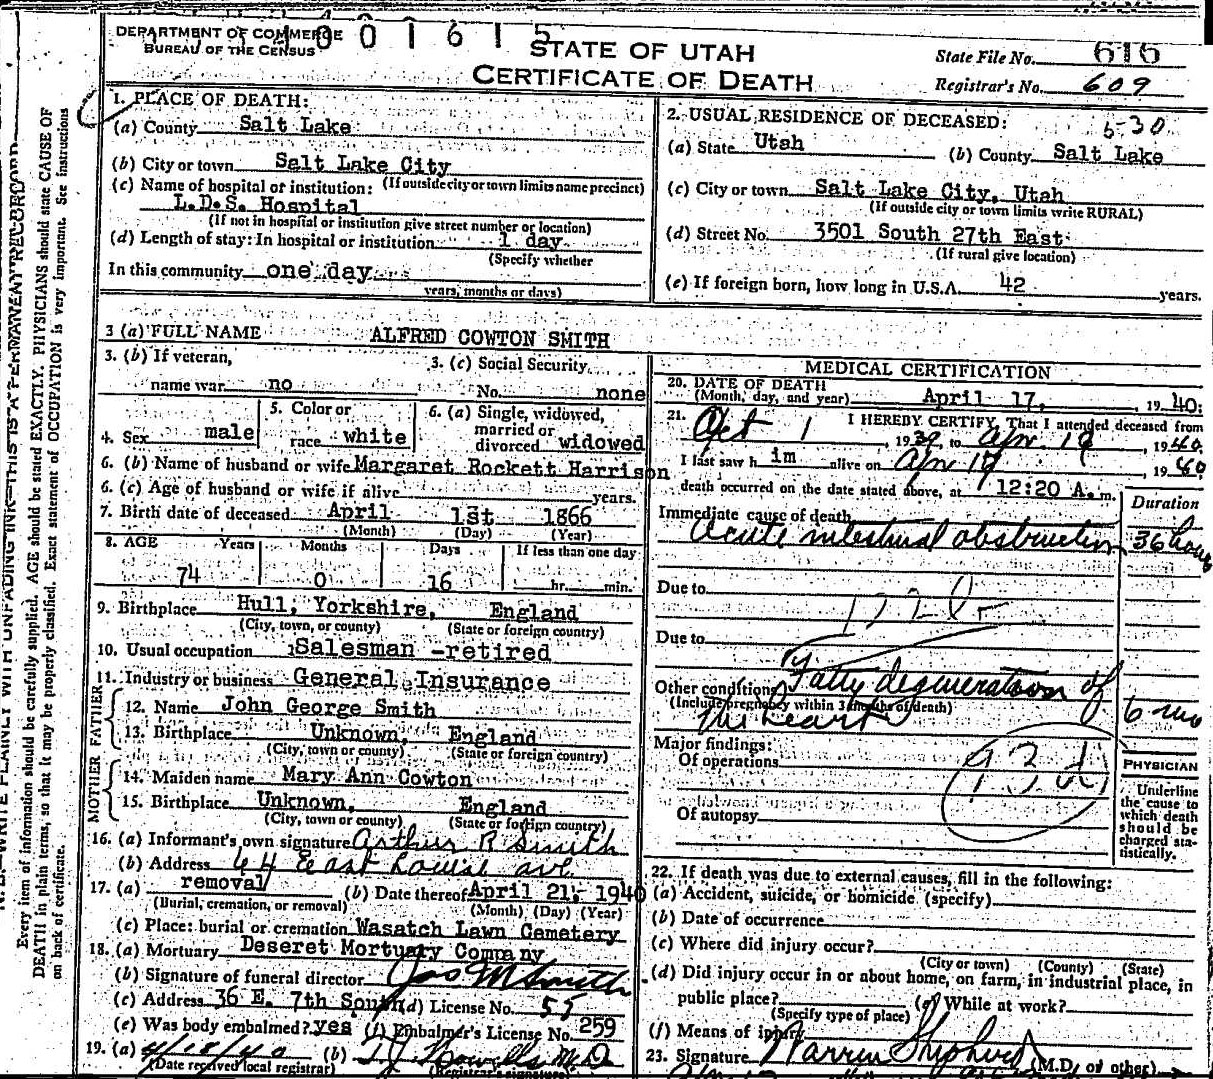 DEPARTMENT OF COMMERCE
BUREAU OF THE CENSUS
4001615
STATE OF UTAH
CERTIFICATE OF DEATH
State File No. 616
Registrar's No. 609
1. PLACE OF DEATH:
(a) County Salt Lake
(b) City or town Salt Lake City
(If outside city or town limits name precinct)
(c) Name of hospital or institution:
L.D.S. Hospital
(If not in hospital or institution give street number or location)
(d) Length of stay: In hospital or institution 1 day
(Specify whether
In this community one day
years, months or days)
2. USUAL RESIDENCE OF DECEASED:
(a) State Utah (b) County Salt Lake
(c) City or town Salt Lake City, Utah
(If outside city or town limits write RURAL)
(d) Street No. 3501 South 27th East
(If rural give location)
(e) If foreign born, how long in U.S.A. 42 years.
3 (a) FULL NAME ALFRED COWTON SMITH
3. (b) If veteran,
name war no
3. (c) Social Security
No. none
4. Sex male
5. Color or
race white
6. (a) Single, widowed,
married or
divorced widowed
6. (b) Name of husband or wife Margaret Rockett Harrison
6. (c) Age of husband or wife if alive years.
7. Birth date of deceased April 1st 1866
(Month) (Day) (Year)
8. AGE Years Months Days If less than one day
74 0 16 hr. min.
9. Birthplace Hull, Yorkshire, England
(City, town, or county) (State or foreign country)
10. Usual occupation Salesman -retired
11. Industry or business General Insurance
FATHER
12. Name John George Smith
13. Birthplace Unknown, England
(City, town or county) (State or foreign country)
MOTHER
14. Maiden name Mary Ann Cowton
15. Birthplace Unknown, England
(City, town or county) (State or foreign country)
16. (a) Informant's own signature Arthur R Smith
(b) Address 64 East Louise ave
17. (a) removal (b) Date thereof April 21, 1940
(Burial, cremation, or removal) (Month) (Day) (Year)
(c) Place: burial or cremation Wasatch Lawn Cemetery
18. (a) Mortuary Deseret Mortuary Company
(b) Signature of funeral director Jos M Smith
(c) Address 36 E. 7th South (d) License No. 55
(e) Was body embalmed? yes (f) Embalmer's License No. 259
19. (a) 4/18/40 (b) T.J. Howells M.D.
(Date received local registrar) (Registrar's signature)
MEDICAL CERTIFICATION
20. DATE OF DEATH
(Month, day, and year) April 17, 1940:
21. I HEREBY CERTIFY, That I attended deceased from
Oct 1, 1939, to Apr 19, 1940.
I last saw him alive on Apr 1940
death occurred on the date stated above, at 12:20 A.m.
Duration
Immediate cause of death
Acute intestinal obstruction 36 hours
Due to
Due to
Other conditions Fatty degeneration of
(Include pregnancy within 3 months of death)
the heart 6 mo
Major findings:
Of operations
Of autopsy
PHYSICIAN
Underline
the cause to
which death
should be
charged sta-
tistically.
22. If death was due to external causes, fill in the following:
(a) Accident, suicide, or homicide (specify)
(b) Date of occurrence
(c) Where did injury occur?
(City or town) (County) (State)
(d) Did injury occur in or about home, on farm, in industrial place, in
public place? (e) While at work?
(Specify type of place)
(f) Means of injury
23. Signature Warren Shepherd (M.D. or other)
WRITE PLAINLY WITH UNFADING INK—THIS IS A PERMANENT RECORD
Every item of information should be carefully supplied. AGE should be stated EXACTLY. PHYSICIANS should state CAUSE OF
DEATH in plain terms, so that it may be properly classified. Exact statement of OCCUPATION is very important. See instructions
on back of certificate.